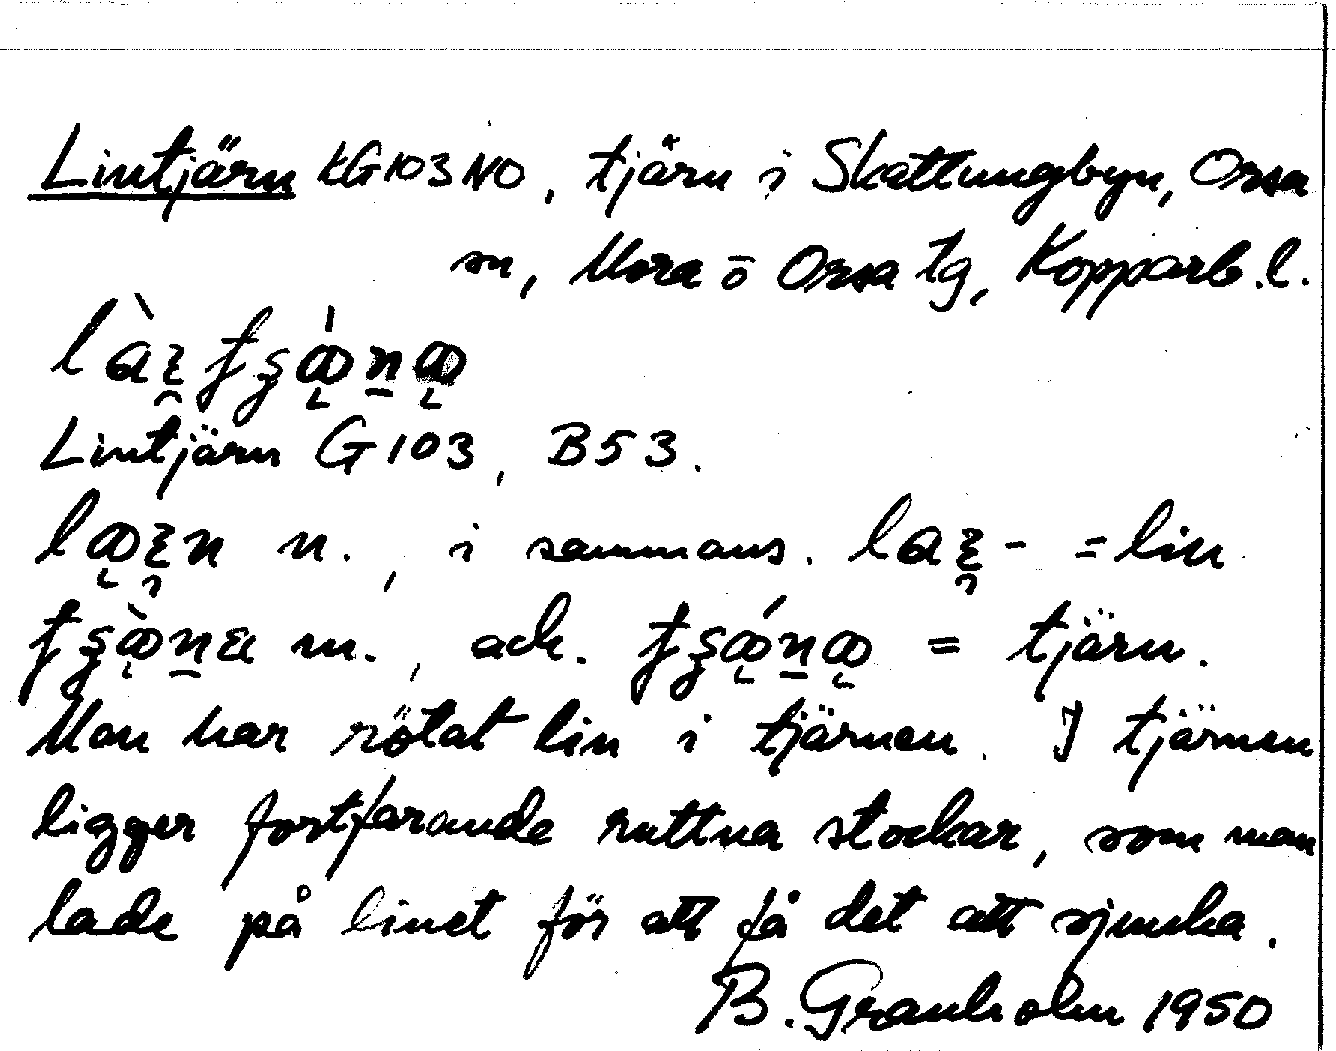 Lintjärn KG103NO, tjärn i Skattungbyn, Orsa
sn, Mora o Orsa tg, Kopparb.l.
Lintjärn G103, B53.
n., i sammans. = lin
m., ack. = tjärn.
Man har rötat lin i tjärnen. I tjärnen
ligger fortfarande ruttna stockar, som man
lade på linet för att få det att sjunka.
B. Granholm 1950